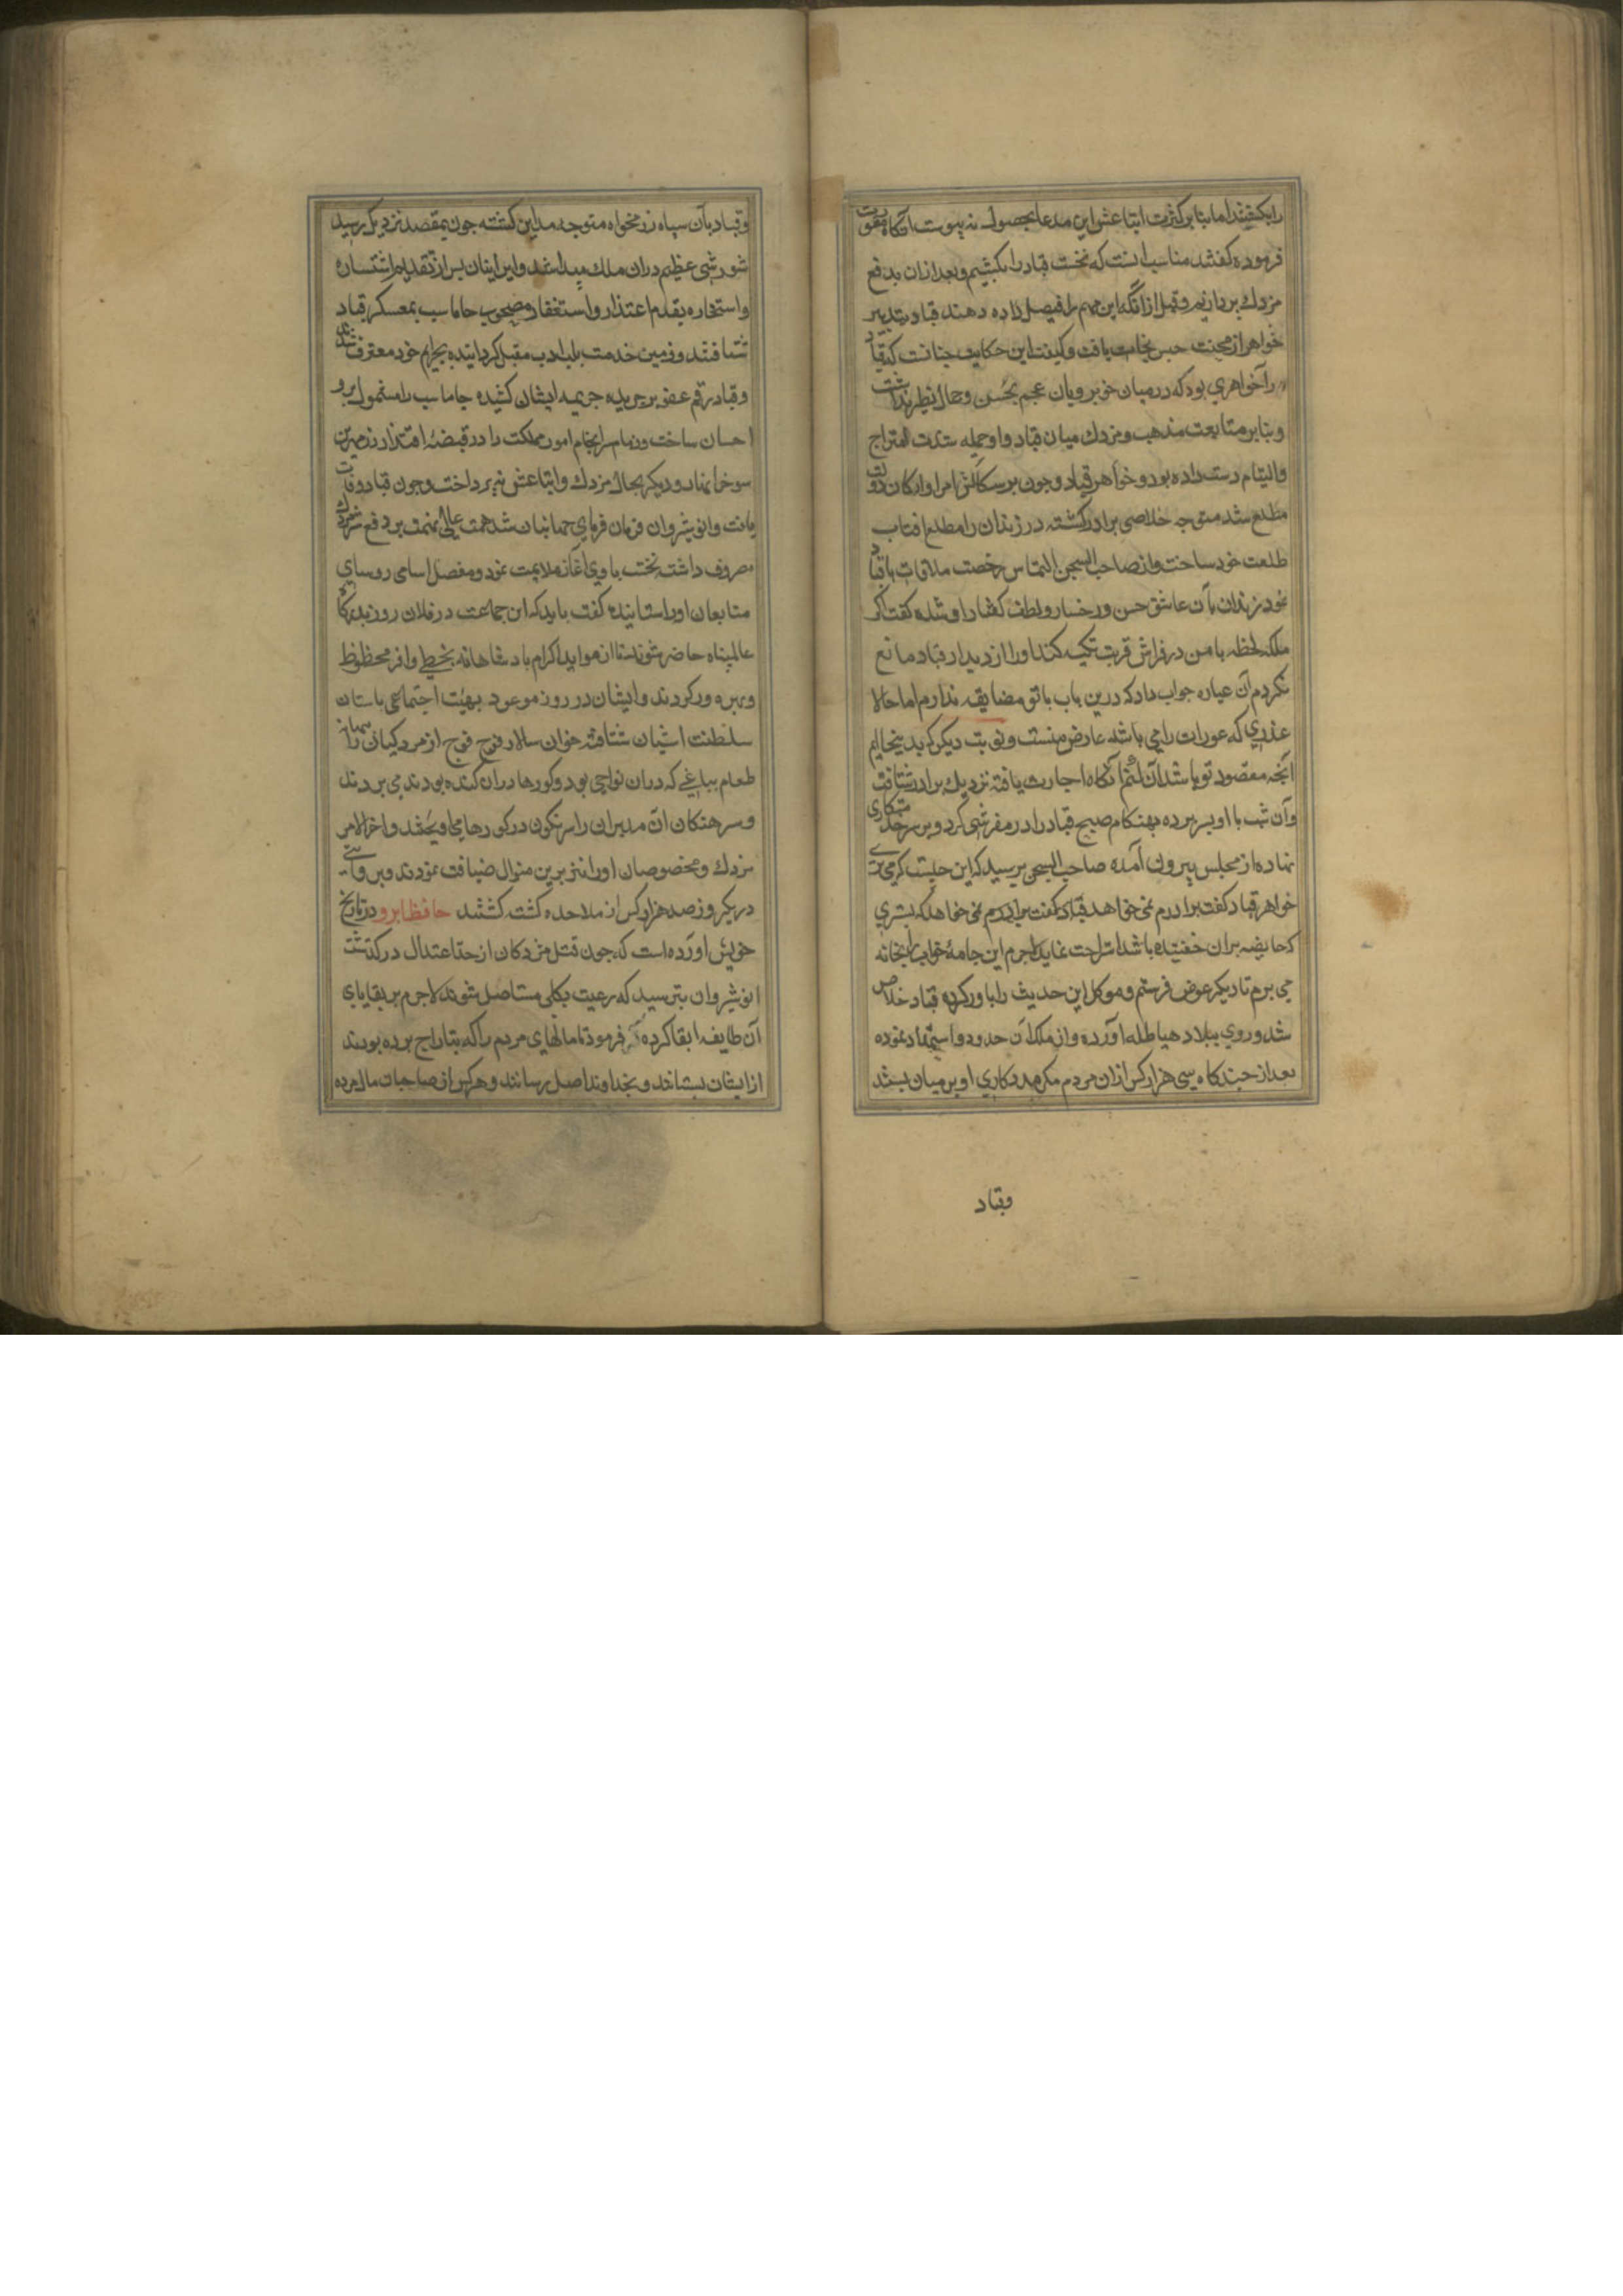 را بکشند اما بنا بر کثرت اتباعش این مدعا بحصول نه پیوست آنکاه مقورت
فرموده کفتند مناسب انست که نخست قباد را بکشیم و بعد ازان بدفع
مزدك پردازیم و قبل ازانکه این مهم را فیصل داده دهند قباد بتدبیر
خواهر از محنت حبس نجات یافت و کیفیت این حکایت چنانست که قباد
را خواهری بود که در میان خوبرویان عجم بحسن و جمال نظیر نداشت
و بنا بر متابعت مذهب مزدك میان قباد و او جمله شدت امتزاج
والتیام دست داده بود و خواهر قباد چون بر سکالش امرا و ارکان دولت
مطلع شد متوجه خلاصی برادر کشته در زندان را مطلع افتاب
طلعت خود ساخت و از صاحب السجن التماس رخصت ملاقات با قباد
نمود زندان بان عاشق حسن و رخسار و لطف کفتار او شده کفت اکر
ملکه لحظه با من در فراش قربت تکیه کند او را از دیدار قباد مانع
نکردم آن عیاره جواب داد که درین باب با تو مضایقه ندارم اما حالا
عذری که عورات را می باشد عارض منست و نوبت دیکر که بدینجا ایم
آنچه مقصود تو باشد آن کنم آنکاه اجازت یافته نزدیك برادر شتافت
و آن شب با او بسر برده بهنکام صبح قباد را در مفرشی کرد و بر سر خدمتکاری
نهاده از مجلس بیرون آمده صاحب السجن پرسید که این چیست که می بری
خواهر قباد کفت برادرم نمی خواهد قباد کفت برادرم نمی خواهد که بستری
که حایضه بران خفتیده باشد استراحت نماید لاجرم این جامۀ خواب را بخانه
می برم تا دیکر عوض فرستم و موکل این حدیث را باور کرده قباد خلاص
شد و روی ببلاد هیاطله آورده و از ملك آن حدود استمداد نموده
بعد از چندکاه سی هزار کس ازان مردم کمر مددکاری او بر میان بستند
وقباد
وقباد بآن سپاه رزمخواه متوجه مداین کشته چون بمقصد نزدیك رسید
شورشی عظیم دران ملك پیدا شد و ایرانیان پس از تقدیم استشاره
و استخاره بقدم اعتذار و استغفار مصحوب جاماسب بمعسکر قباد
شتافتند و زمین خدمت بلب ادب مقبل کردانیده بجرایم خود معترف شدند
و قباد رقم عفو بر جریده جریمه ایشان کشیده جاماسب را مشمول بر و
احسان ساخت و زمام سرانجام امور مملکت را در قبضۀ اقتدار زرمهر بن
سوخرا نهاد و دیکر بحال مزدك و اتباعش نپرداخت و چون قباد وفات
یافت و انوشیروان فرمان فرمای جهانیان شد همت عالی نهمت بر دفع شر مزدك
مصروف داشته نخست با وی آغاز ملایمت نمود و مفصل اسامی روسای
متابعان او را ستانیده کفت باید که این جماعت در فلان روز بدرکاه
عالمپناه حاضر شوند تا از مواید اکرام بادشاهانه بحظی وافر محظوظ
و بهره ور کردند و ایشان در روز موعود بهیئت اجتماعی باستان
سلطنت اشیان شتافته خوان سالار فوج فوج از مزدکیان را ببهانۀ
طعام بباغی که دران نواحی بود و کورها دران کنده بودند می بردند
و سرهنکان آن مدبران را سرنکون در کورها می آویختند و اخر الامر
مزدك و مخصوصان او را نیز برین منوال ضیافت نمودند و بروایتی
در یکروز صد هزار کس از ملاحده کشته کشتند حافظ ابرو در تاریخ
خویش آورده است که چون قتل مزدکان از حد اعتدال در کذشت
انوشیروان بترسید که رعیت بکلی مستاصل شوند لاجرم بر بقایای
آن طایفه ابقا کرده فرمود تا مالهای مردم را که بتاراج برده بودند
از ایشان بستانند و بخداوند اصل رسانند و هر کس از صاحبات مال مرده